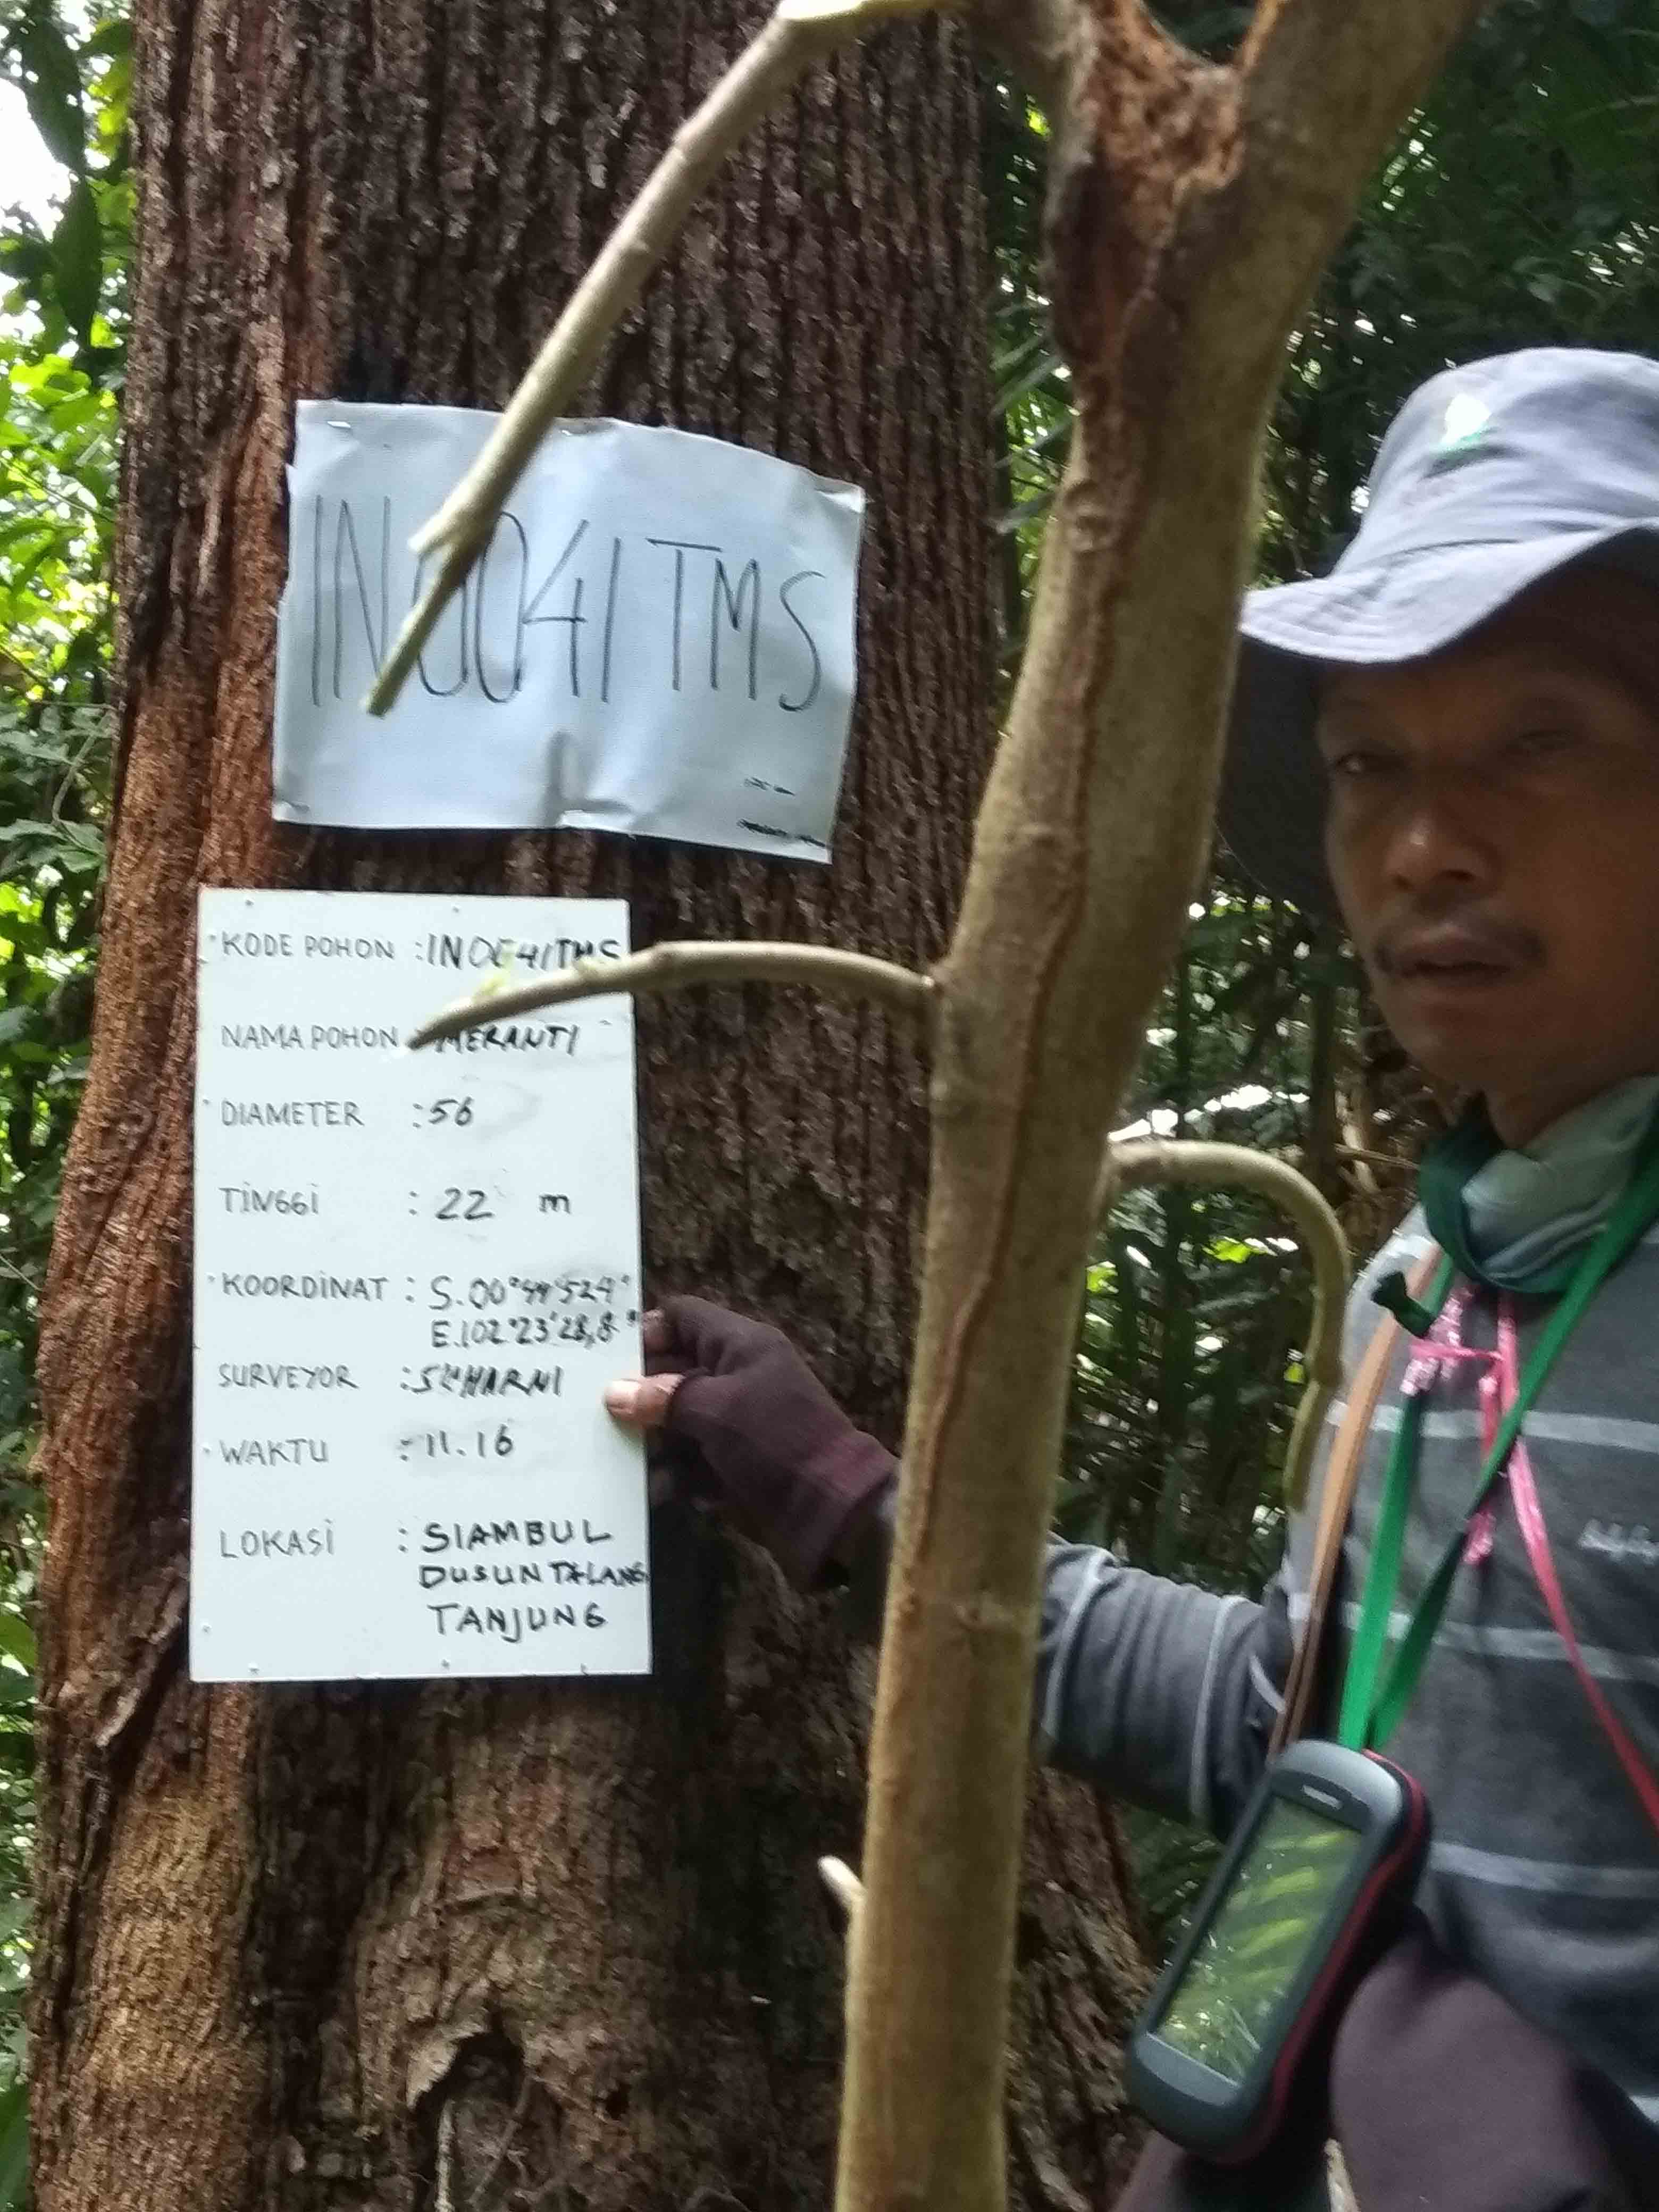 IN0041TMS
KODE POHON : IN0041TMS
NAMA POHON : MERANTI
DIAMETER : 56
TINGGI : 22 m
KOORDINAT : S.00°49'52,9"
E.102°23'28,8"
SURVEYOR : SUHARNI
WAKTU : 11.16
LOKASI : SIAMBUL
DUSUN TALANG
TANJUNG